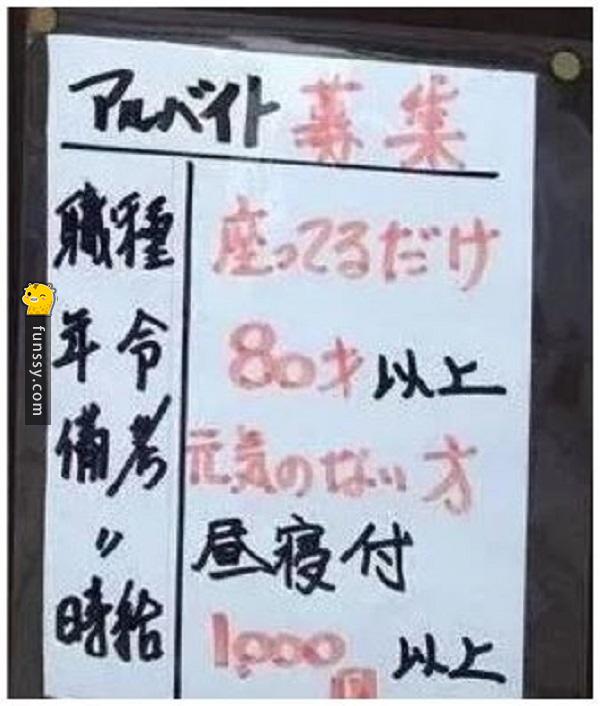 アルバイト募集
職種 座ってるだけ
年令 80才以上
備考 元気のない方
〃 昼寝付
時給 1,000円以上
funssy.com